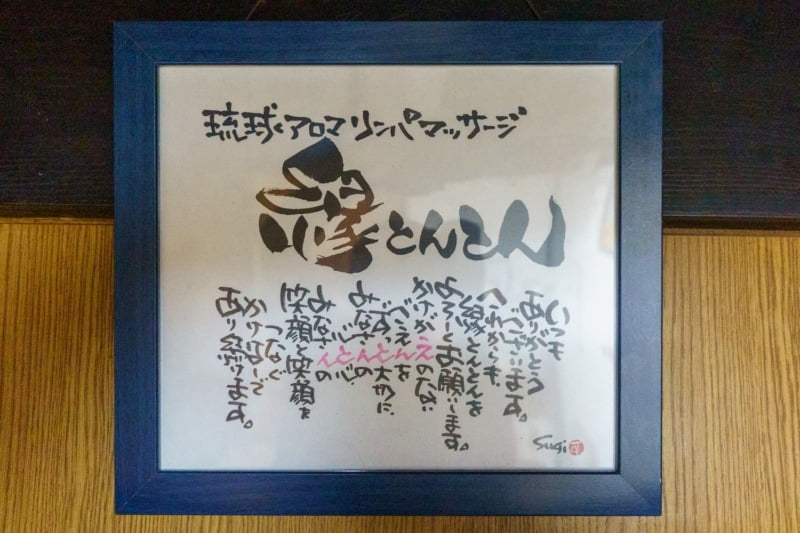 琉球アロマリンパマッサージ
縁とんとん
いつも
ありがとう
ございます。
これからも
縁とんとんを
よろしくお願いします。
かけがえのない
ごえんを
大切に
みなさんの
笑顔と笑顔を
つなぐ
かけはしで
あり続けます。
Sugi